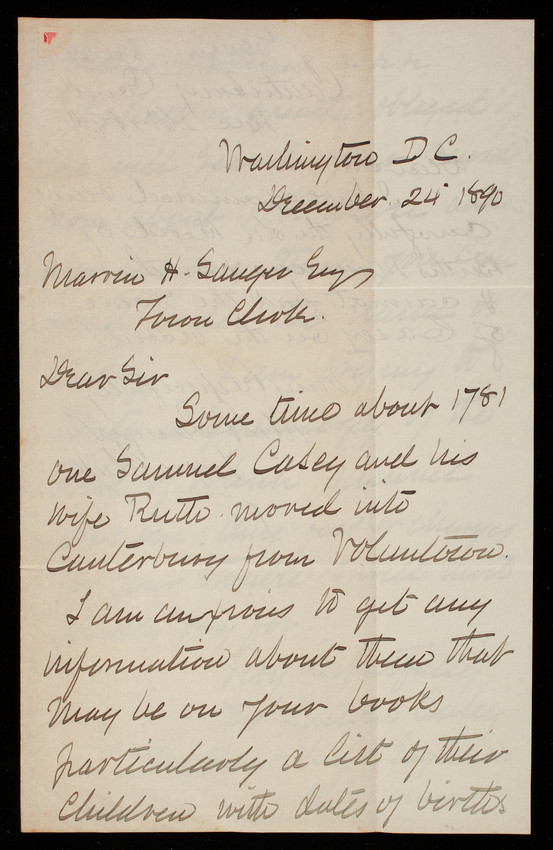 Washington D C.
December. 24 1890
Marvin H. Sanger Esq
Town Clerk.
Dear Sir
Some time about 1781
one Samuel Casey and his
wife Ruth moved into
Canterbury from Voluntown.
I am anxious to get any
information about them that
may be on your books
particularly a list of their
children with dates of births